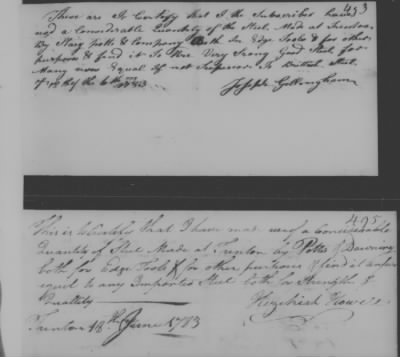 493
These are To Certify that I the Subscriber have
used a Considerable Quantity of the Steel Made at Trenton
By Stacy potts & Company Both for Edge Tools & for other
purposes & find it To Bee Very Strong Good Steel for
Many uses Equal if not Superior To British Steel
of the 6th 1773
Joseph Gollingham
495
This is to Certify that I have made use of a Considerable
Quantity of Steel Made at Trenton by Potts & Downing
both for Edge Tools & for other purposes & find it
equal to any Imported Steel both for Strength &
Quallity
Hezekiah Howe
Trenton 18th June 1773